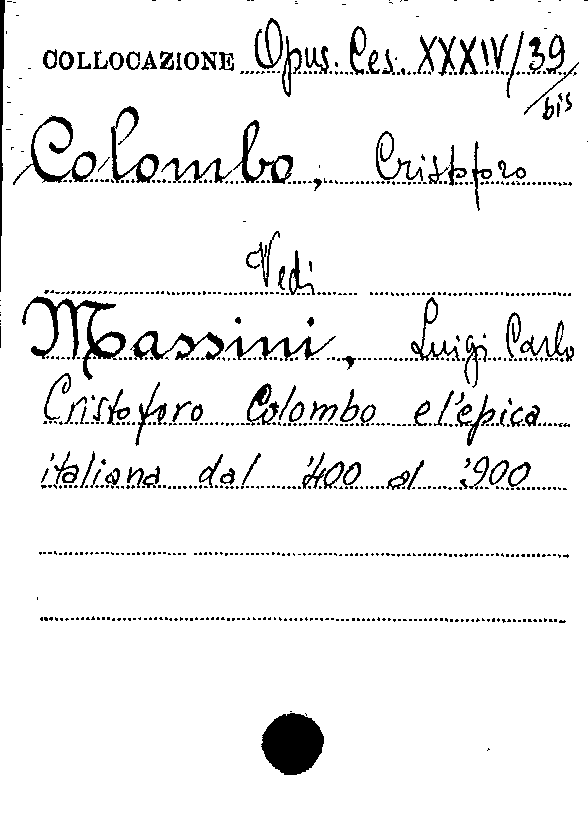 COLLOCAZIONE Opus. Ces. XXXIV/39
bis
Colombo, Cristoforo
Vedi
Massini, Luigi Carlo
Cristoforo Colombo e l'epica
italiana dal '400 al '900